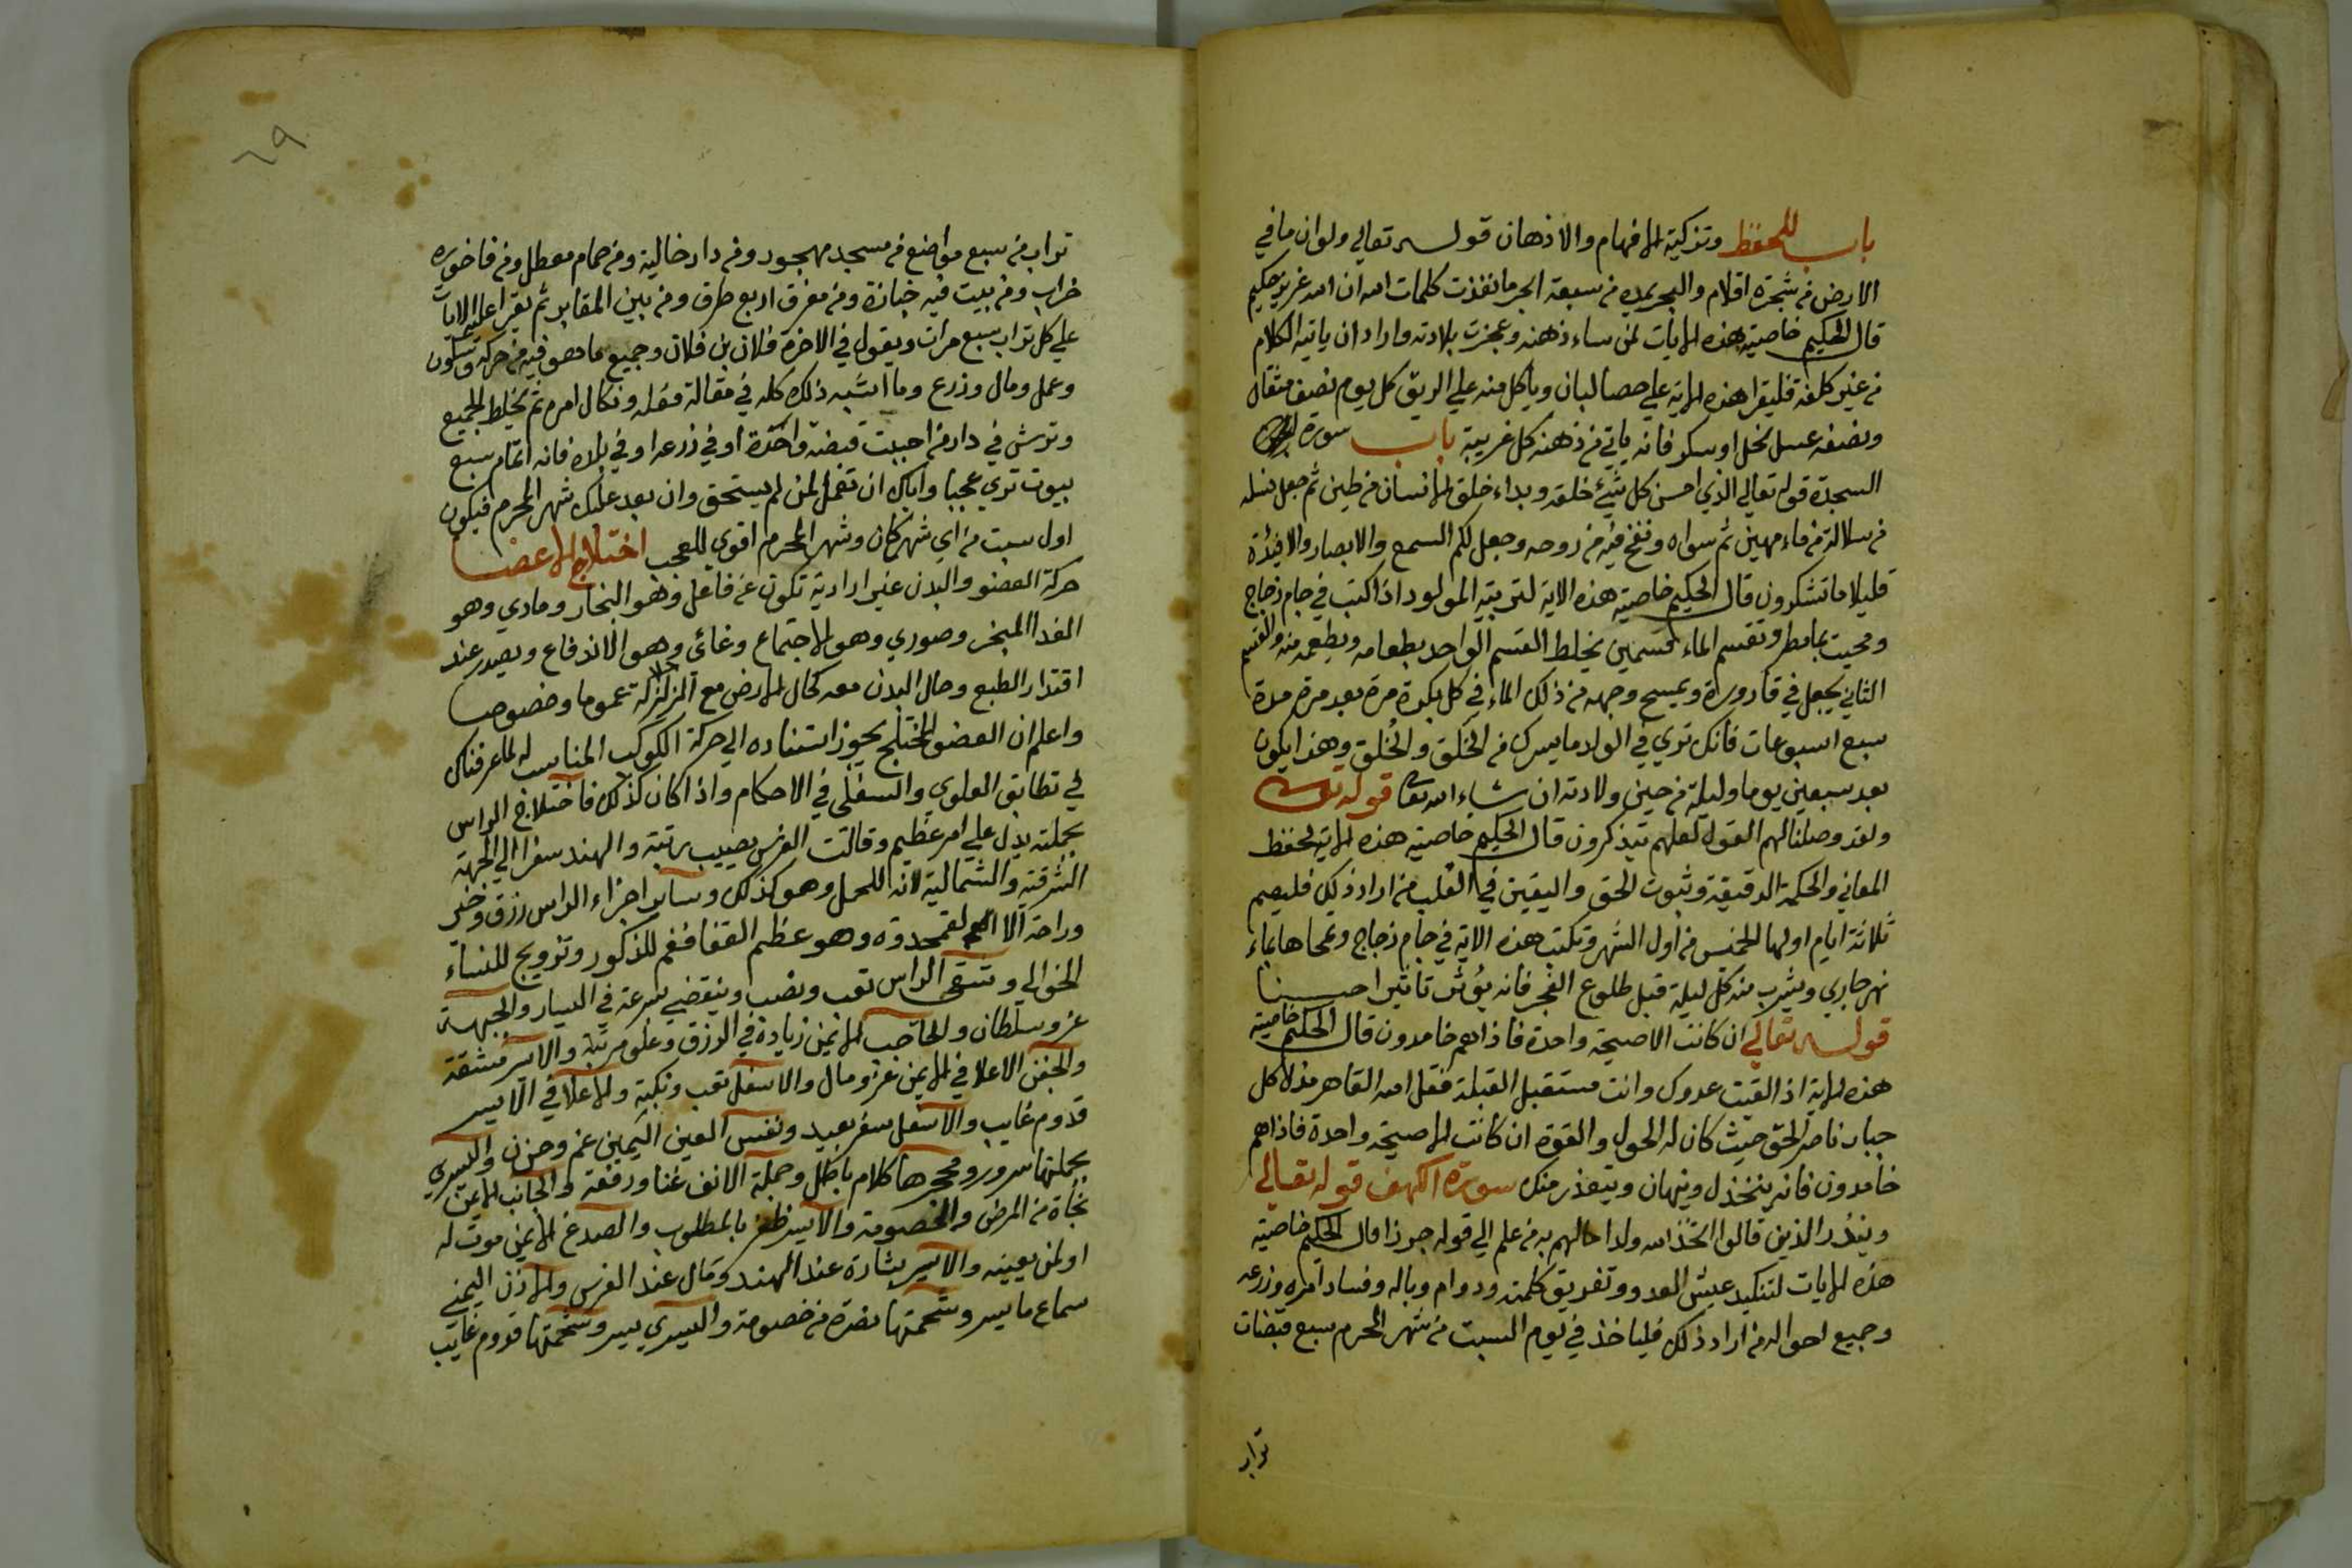 باب للحفظ وتزكية الافهام والاذهان قوله تعالي ولو ان ما في
الارض من شجرة اقلام والبحر يمده من سبعة ابحر ما نفذت كلمات الله ان الله عزيز حكيم
قال الحكيم خاصية هذه الايات لمن ساء ذهنه وعجزت بلادته واراد ان ياتيه الكلام
من غير كلفة فليقرا هذه الاية علي حصا لبان وياكل منه علي الريق كل يوم نصف مثقال
ونصفه عسل نحل او سكر فانه ياتي من ذهنه كل غريبة باب سورة
السجدة قوله تعالي الذي احسن كل شيء خلقه وبداء خلق الانسان من طين ثم جعل نسله
من سلالة من ماء مهين ثم سواه ونفخ فيه من روحه وجعل لكم السمع والابصار والافيدة
قليلا ما تشكرون قال الحكيم خاصية هذه الاية لتربية المولود اذا كتبت في جام زجاج
ومحيت بما مطر وتقسم الماء قسمين يخلط القسم الواحد بطعامه ويطعمه منه والقسم
الثاني يجعل في قارورة ويمسح وجهه من ذلك الماء في كل بكرة مرة بعد مرة مدة
سبع اسبوعات فانك تري في الولد ما يسرك من الخلق والخلق وهذا يكون
بعد سبعين يوما وليلة من حين ولادته ان شاء الله تعا قوله تعالى
ولقد وصلنا لهم القول لعلهم يتذكرون قال الحكيم خاصية هذه الاية لحفظ
المعاني والحكمة الدقيقة وثبوت الحق واليقين في القلب من اراد ذلك فليصم
ثلاثة ايام اولها الخمس من اول الشهر وتكتب هذه الاية في جام زجاج وتمحاها بماء
نهر جاري ويشرب منه كل ليلة قبل طلوع الفجر فانه يؤثر تاثيرا حسنا
قوله تعالي ان كانت الا صيحة واحدة فاذا هم خامدون قال الحكيم خاصية
هذه الاية اذ القيت عدوك وانت مستقبل القبلة فقل الله القاهر مذل كل
جبار ناصر الحق حيث كان له الحول والقوة ان كانت الا صيحة واحدة فاذا هم
خامدون فانه ينخذل ويهان ويتعذر منك سورة الكهف قوله تعالي
وينذر الذين قالوا اتخذ الله ولدا مالهم به من علم الي قوله جرزا قال الحكيم خاصية
هذه الايات لتنكيد عيش العدو وتفريق كلمته ودوام وباله وفساد امره وزرعه
وجميع احواله من اراد ذلك فلياخذ في يوم السبت من شهر المحرم سبع قبضات
تراب
٦٩
تراب من سبع مواضع من مسجد مهجور ومن دار خالية ومن حمام معطل ومن فاخورة
خراب ومن بيت فيه خبازة ومن مفرق اربع طرق ومن بين المقابر ثم يقرا عليهم الايات
علي كل تراب سبع مرات ويقول في الاخرة فلان بن فلان وجميع ما هو فيه من حركة وسكون
وعمل ومال وزرع وما اشبه ذلك كله في مقالة فعله ونكال امره ثم يخلط الجميع
وترش في دار من احببت قبضة واحدة او في زرعه او في بلاده فانه اتمام سبع
بيوت تري عجبا واياك ان تفعل لمن لم يستحق وان بعد عليك شهر المحرم فيكون
اول سبت من اي شهر كان وشهر المحرم اقوي للعجب اختلاج الاعضا
حركة العضو والبدن غير ارادية تكون عن فاعل وهو البخار ومادي وهو
الغدا المبخر وصوري وهو الاجتماع وغائي وهو الاندفاع ويصدر عند
اقتدار الطبع وحال البدن معه كحال الارض مع الزلزلة عموما وخصوصا
واعلم ان العضو المختلج يجوز استناده الي حركة الكوكب المناسب له لما عرفناك
في تطابق العلوي والسفلي في الاحكام واذا كان كذلك فاختلاج الراس
بجملته يدل علي امر عظيم وقالت الفرس يصيب رتبة والهند سفرا الي الجهة
الشرقية والشمالية لانه للحمل وهو كذلك وساير اجزاء الراس رزق وخير
وراحة الا القمحدوة وهو عظم القفا فغم للذكور وتزويج للنساء
الخوالي وشقي الراس تعب ونصب وينقضي بسرعة في اليسار والجبهة
عز وسلطان والحاجب الايمن زيادة في الرزق وعلو مرتبة والايسر مشقة
والجفن الاعلا في الايمن عز ومال والاسفل تعب ونكبة والاعلا في الايسر
قدوم غايب والاسفل سفر بعيد ونفس العين اليمين غم وحزن واليسري
بجملتها سرور ومحجرها كلام باطل وجملة الانف غنا ورفعة والجانب الايمن
نجاة من المرض والخصومة والايسر ظفر بالمطلوب والصدغ الايمن موت له
او لمن يعينه والايسر بشارة عند الهند ومال عند الفرس والاذن اليمني
سماع ما يسر وشحمتها نصرة من خصومة واليسري يسر وشحمتها قدوم غايب